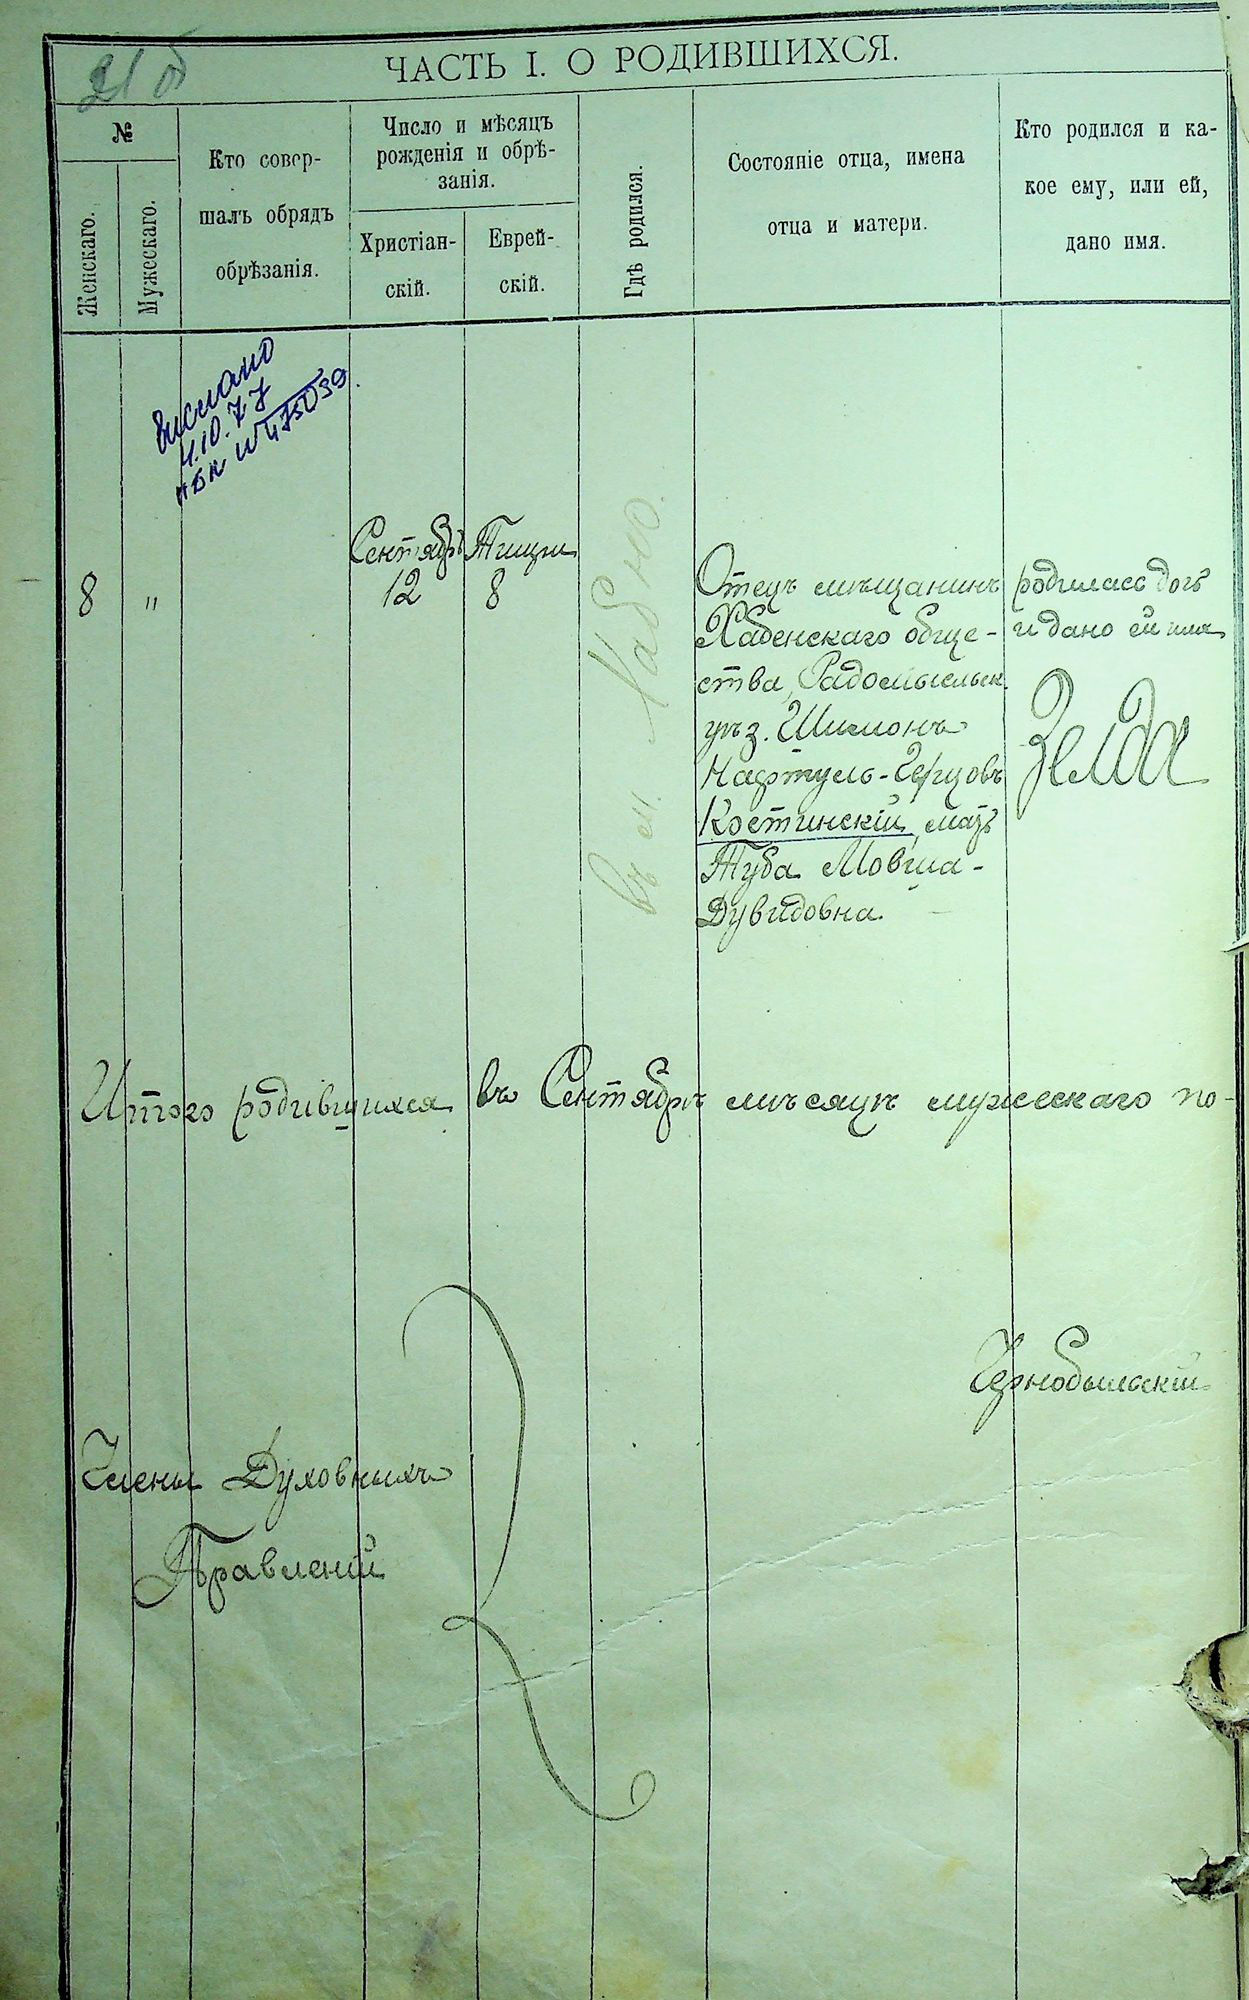 21 об
ЧАСТЬ I. О РОДИВШИХСЯ.
№
Женскаго.
Мужескаго.
Кто совер-
шалъ обрядъ
обрѣзанія.
Число и мѣсяцъ
рожденія и обрѣ-
занія.
Христіан-
скій.
Еврей-
скій.
Гдѣ родился.
Состояніе отца, имена
отца и матери.
Кто родился и ка-
кое ему, или ей,
дано имя.
4.10.77
8
"
Сентябрь
12
Тишри
8
въ м. Хабно.
Отецъ мѣщанинъ
Хабенскаго обще-
ства, Радомысльск.
уѣз. Шимонъ
Нафтуль-Герцовъ
Костинскій, мать
Туба Мовша-
Дувидовна.
родилась дочь
и дано ей имя
Зелда
Итого родившихся въ Сентябрѣ мѣсяцѣ мужескаго по-
Чернобыльскій
Члены Духовныхъ
Правленій